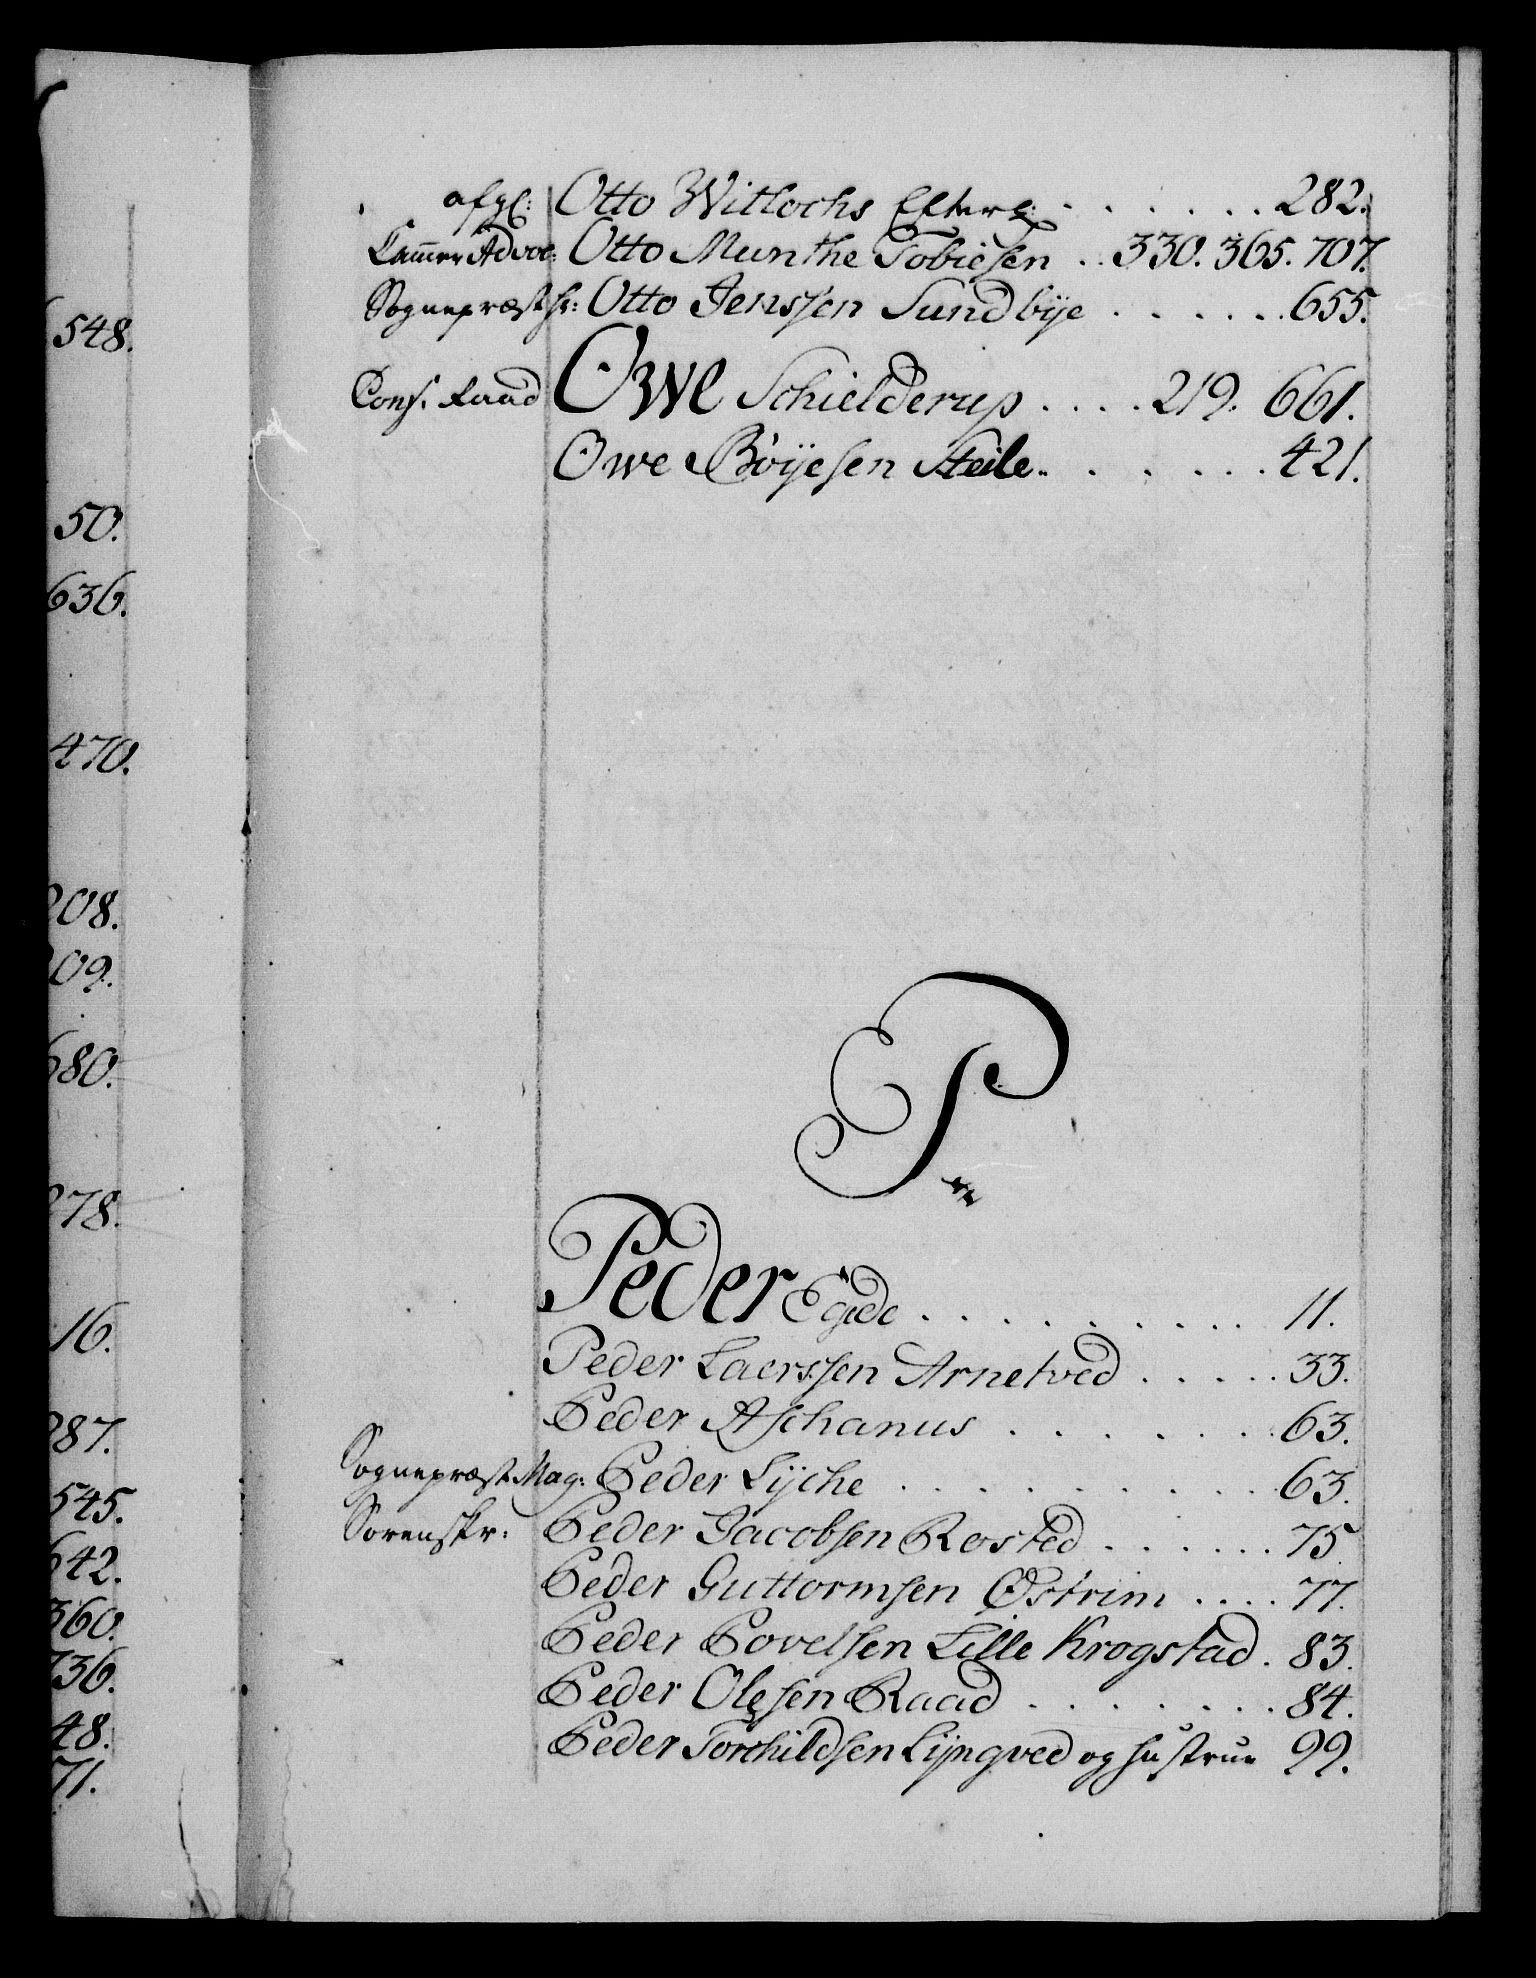 548.
50.
636.
470.
208.
209.
680.
278.
16.
287.
545.
642.
360.
736.
48.
71.
afg: Otto Witlochs Efterl: . . . . . . . 282.
Cammer Advoc: Otto Munthe Tobiesen . . 330. 365. 707.
Sognepræst hr: Otto Jenssen Sundbÿe . . . . . . 655.
Cons. Raad Owe Schielderup . . . . 219. 661.
Owe Böÿesen Steile . . . . . . 421.
P
Peder Egede . . . . . . . . . . 11.
Peder Laerssen Arnetved . . . . . 33.
Peder Aschanus . . . . . . . 63.
Sognepræst Mag: Peder Lÿche . . . . . . . . . . 63.
Sorenskr: Peder Jacobsen Rosted . . . . . . 75.
Peder Guttormsen Østrim . . . . 77.
Peder Povelsen Lille Krogstad . 83.
Peder Olesen Raad . . . . . . . 84.
Peder Torchildsen Lÿngved og hustrue 99.